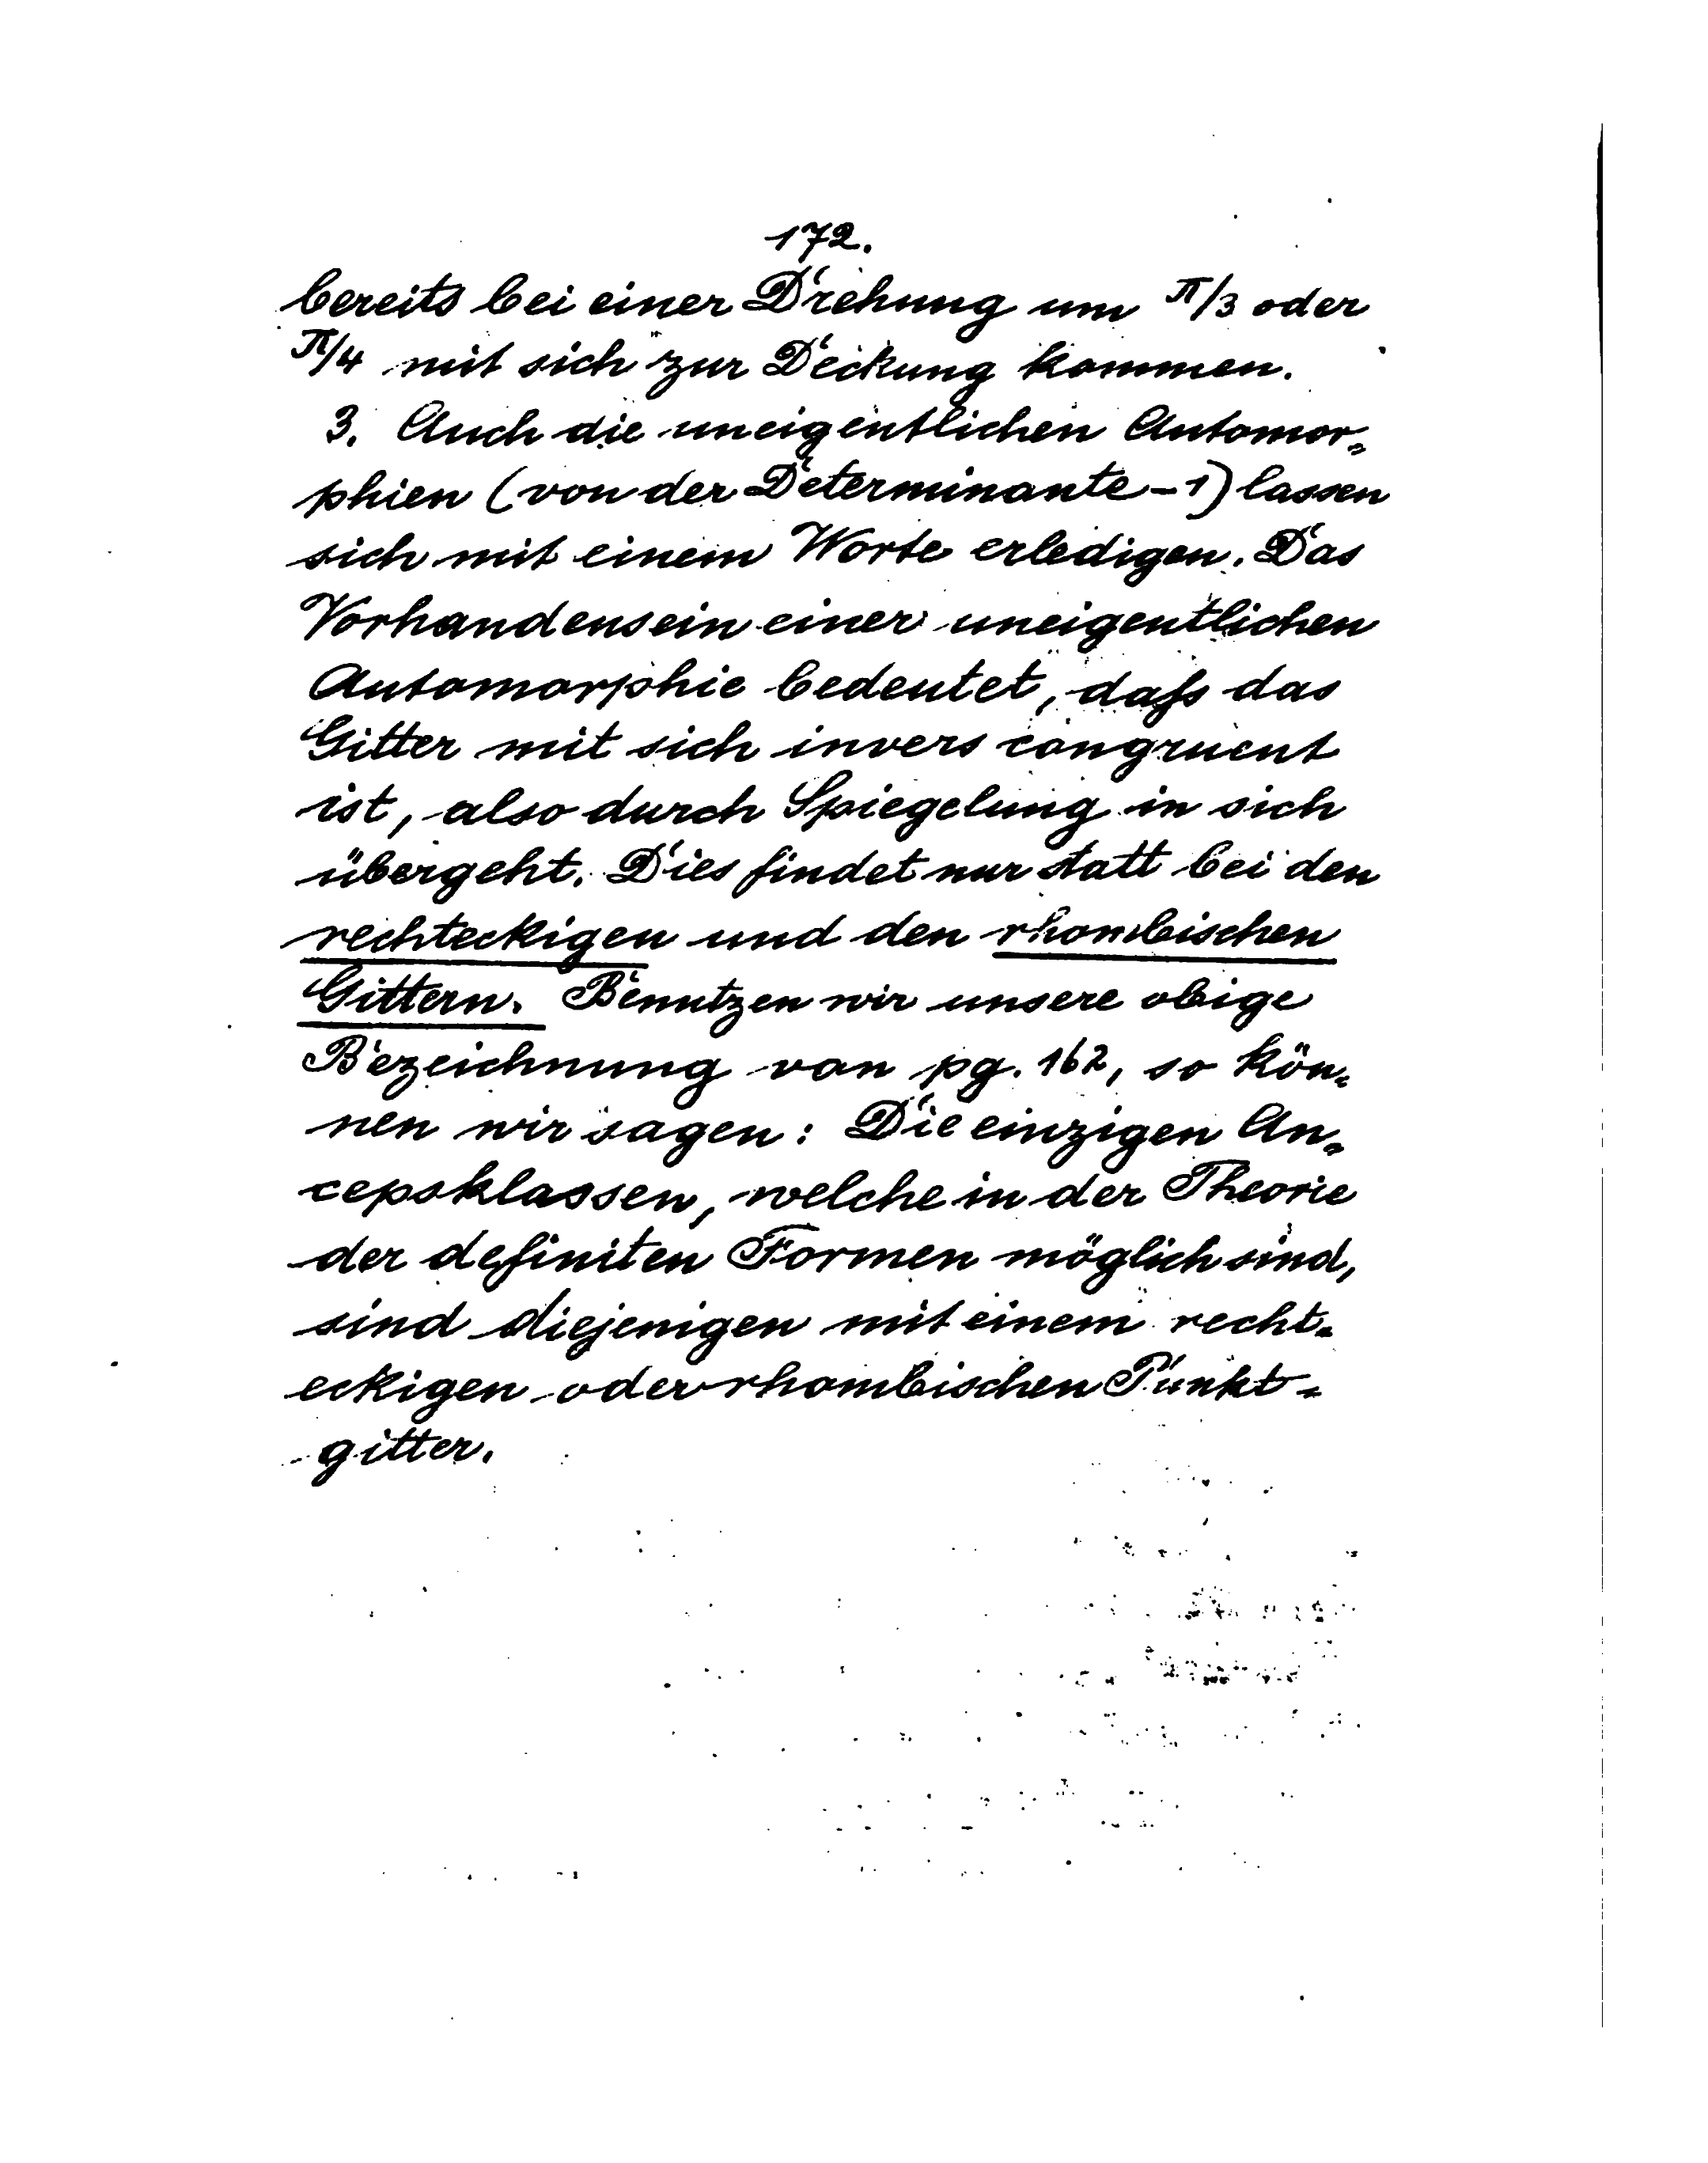 172.
bereits bei einer Drehung um π/3 oder
π/4 mit sich zur Deckung kommen.
3. Auch die uneigentlichen Automor=
phien (von der Determinante -1) lassen
sich mit einem Worte erledigen. Das
Vorhandensein einer uneigentlichen
Automorphie bedeutet, daſs das
Gitter mit sich invers congruent
ist, also durch Spiegelung in sich
übergeht. Dies findet nur statt bei den
rechteckigen und den rhombischen
Gittern. Benutzen wir unsere obige
Bezeichnung von pg. 162, so kön=
nen wir sagen: Die einzigen An=
cepsklassen, welche in der Theorie
der definiten Formen möglich sind,
sind diejenigen mit einem recht=
eckigen oder rhombischen Punkt=
gitter.